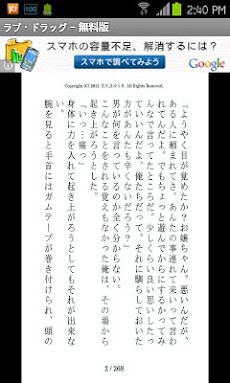 KT
100
2:40 PM
ラブ・ドラッグ - 無料版
スマホの容量不足、解消するには？
スマホで調べてみよう
Google
「ようやく目が覚めたか？お嬢ちゃん。悪いんだが、
ある人に頼まれてさ。あんたの事連れて来いって言わ
れてんだよ。でもちょっと遊んでからにするかってみ
んなで言ってたところだ。少しくらい良い思いしたっ
ていいんだよ、俺たちだって。それに馴らしておいた
方があんたも辛くないだろう？」
男が何を言っているのか全く分からない。
こんなことをされる覚えもなかった俺は、その場から
起き上がろうとした。
「いっ…痛っ」
身体に力を入れて起き上がろうとしてもそれが出来な
い。
腕を見ると手首にはガムテープが巻き付けられ、頭の
2 / 268